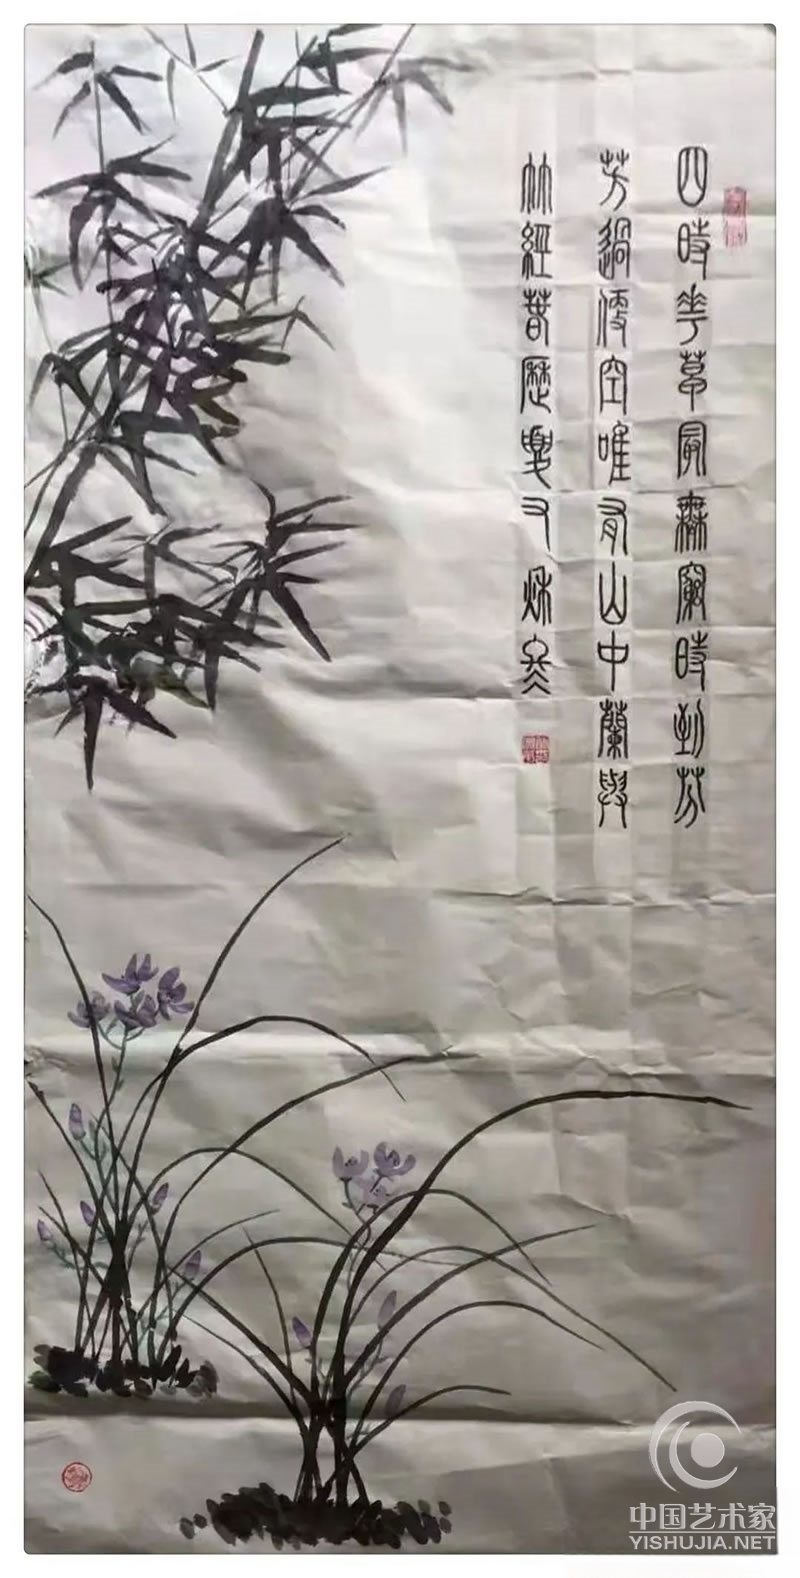 四時花草最無窮時到芬
芳過便空唯有山中蘭與
竹經春歷夏又秋冬
中国艺术家
YISHUJIA.NET